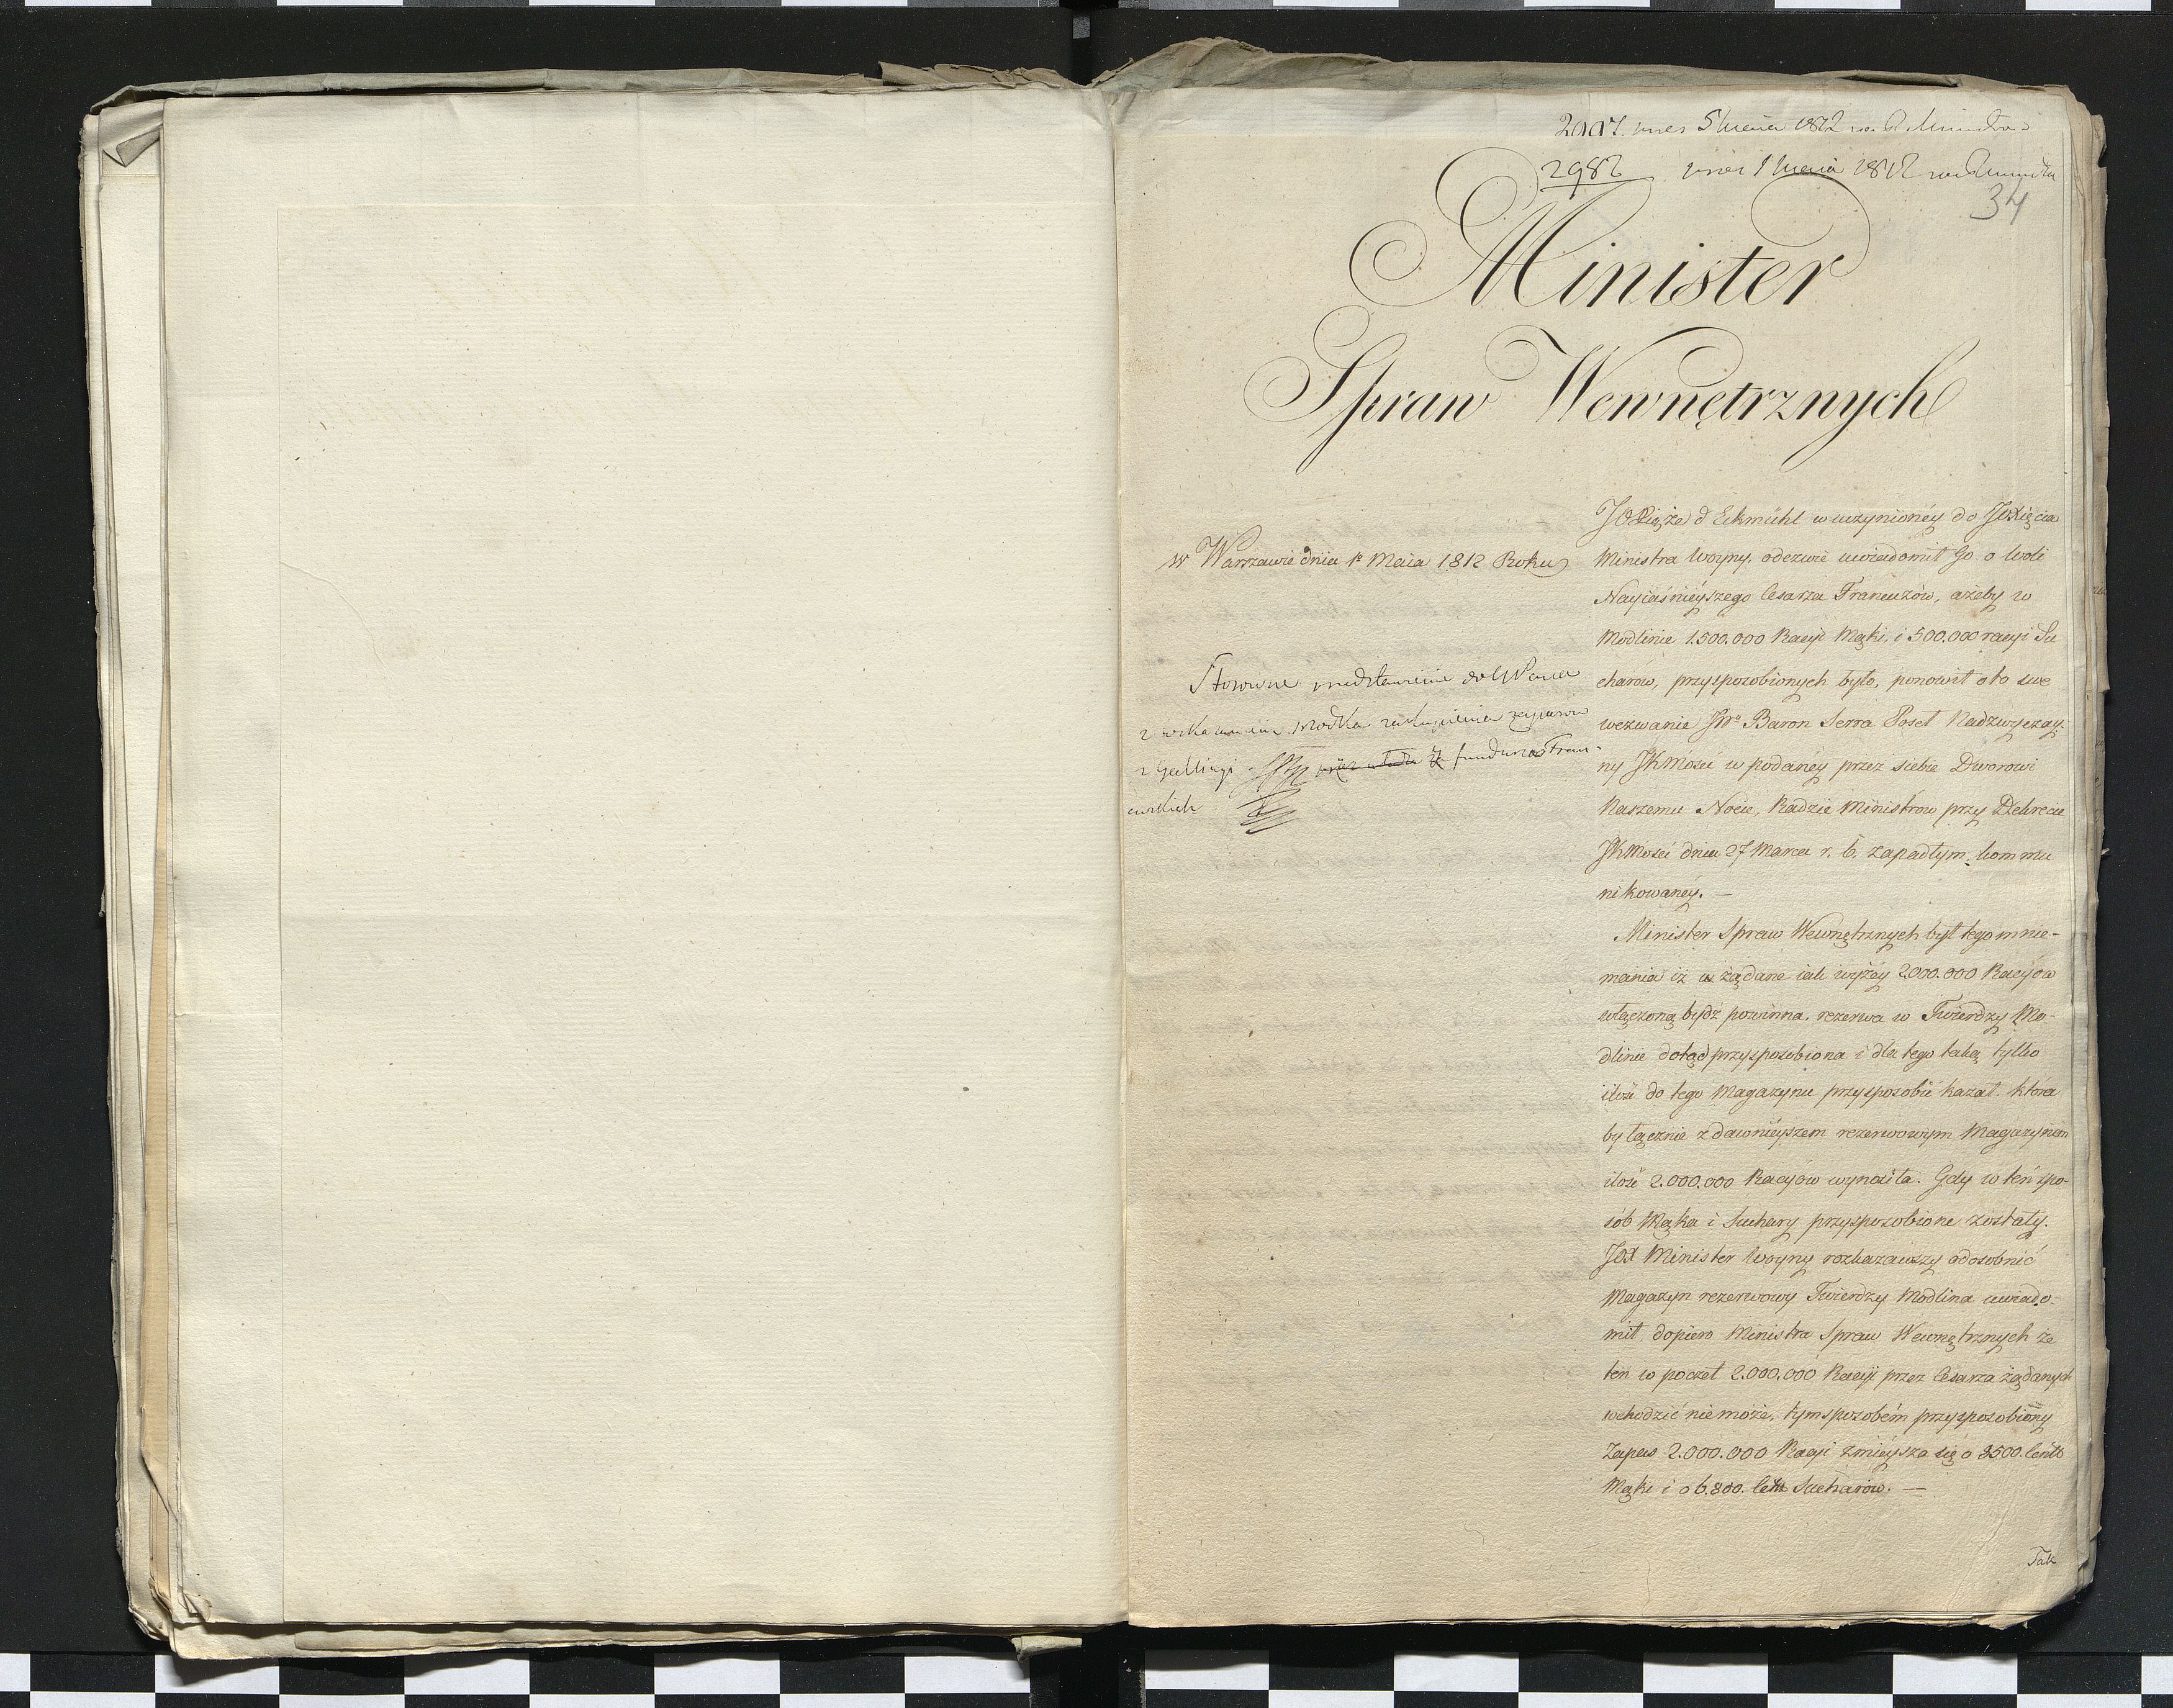 5 Maia 1812
2982 1 Maia 1812
34
Minister
Spraw Wewnętrznych
w Warszawie dnia 1º Maia 1812 Roku
Stosowne przedstawienie do
z wskazaniem środka zakupienia zapasów
z Gallicyi funduszów Fran-
cuzkich
JOXiąże d'Eckmühl w uczynionéy do JOXięcia
Ministra Woyny odezwie uwiadomił Go o Woli
Nayiaśnieyszego Cesarza Francuzów, ażeby w
Modlinie 1.500.000 Racyi Mąki, i 500,000 racyi Su
charów, przysposobionych było, ponowił oto swe
wezwanie JWº Baron Serra Poseł Nadzwyczay-
ny JKMości w podanéy przez siebie Dworowi
Naszemu Nocie, Radzie Ministrow przy Dekrecie
JKMości dnia 27 Marca r. b. zapadłym, kommu
nikowanéy. —
Minister Spraw Wewnętrznych był tego mnie-
mania iż w żądane iak wyżéy 2.000.000 Racyow
włączoną bydź powinna, rezerwa w Twierdzy Mo-
dlinie dotąd przysposobiona i dla tego taką tylko
ilość do tego Magazynu przysposobić kazał, która
by łącznie z dawnieyszem rezerwowym Magazynem
ilość 2.000.000 Racyów wynosiła. Gdy w ten spo-
sób Mąka i Suchary przysposobione zostały.
JOX Minister Woyny rozkazawszy odosobnić
Magazyn rezerwowy Twierdzy Modlina uwiado-
mił dopiero Ministra Spraw Wewnętrznych że
ten w poczet 2.000.000 Racyi przez Cesarza żądanych
wchodzić nie może, tym sposobém przysposobiony
Zapas 2.000.000 Racyi zmnieysza się o 3500. Centr
Mąki i o 6.800. Cetn Sucharów. —
Tak